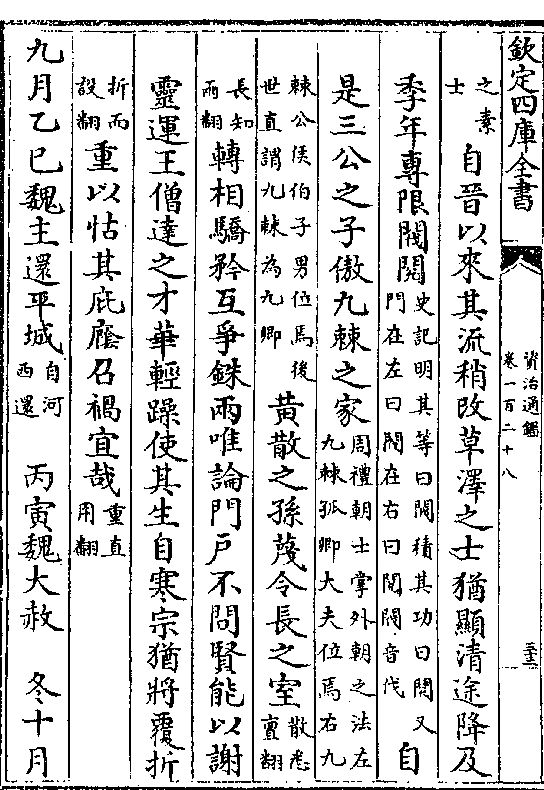 欽定四庫全書
資治通鑑
卷一百二十八
之素
士
自晉以來其流稍改草澤之士猶顯清途降及
季年專限閥閱
史記明其等曰閥積其功曰閱又
門在左曰閥在右曰閱閥音伐
自
是三公之子傲九棘之家
周禮朝士掌外朝之法左
九棘孤卿大夫位焉右九
棘公侯伯子男位焉後
世直謂九棘為九卿
黄散之孫蔑令長之室
散悉
亶翻
長知
兩翻
轉相驕矜互爭銖兩唯論門戶不問賢能以謝
靈運王僧達之才華輕躁使其生自寒宗猶將覆折
折而
設翻
重以怙其庇廕召禍宜哉
重直
用翻
九月乙巳魏主還平城
自河
西還
丙寅魏大赦 冬十月